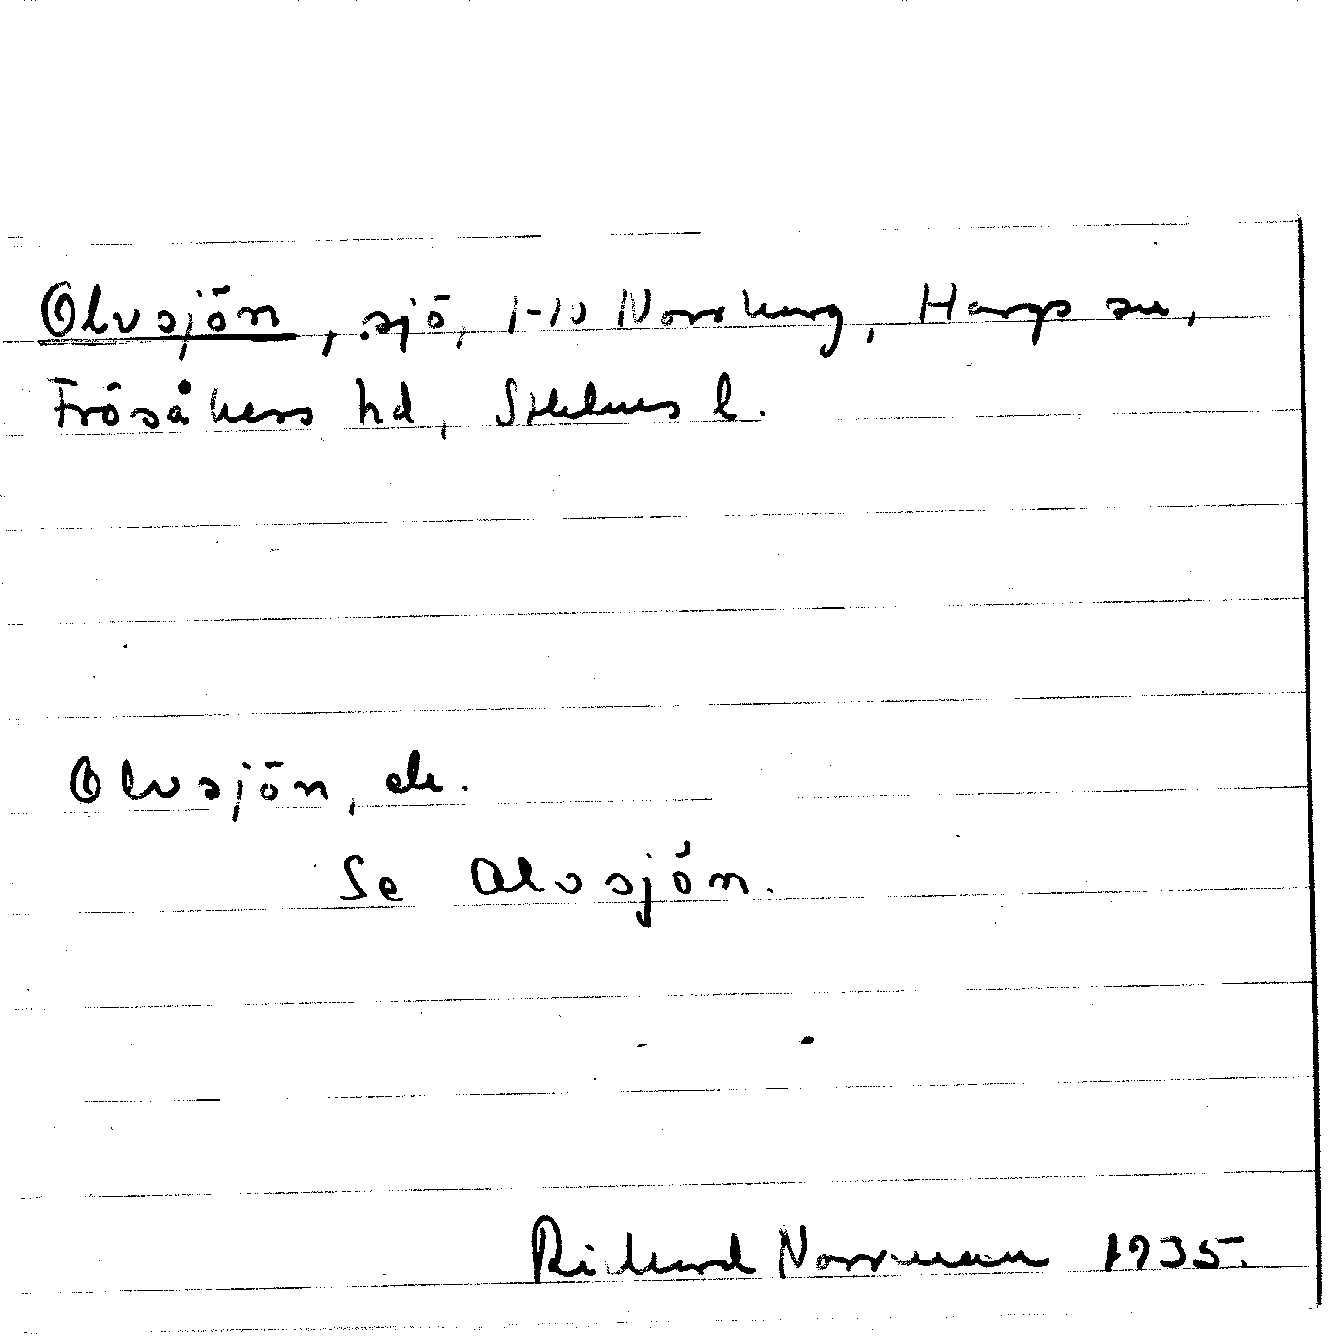 Olvsjön, sjö, 1-10 Norrskog, Hargs sn,
Frösåkers hd, Sthlms l.
Olvsjön, de.
Se Alvsjön.
Richard Norrman 1935.